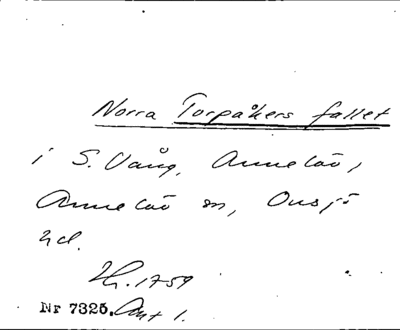 Norra Torpåkers fallet
i S. Vång, Annelöv,
Annelöv sn, Onsjö
hd.
LH. 1759
Nr 7325. Akt 1.